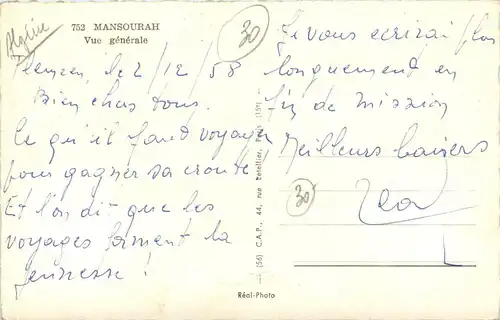 Algérie
752 MANSOURAH
Vue générale
30
Tlemcen, le 2/12/58
Bien chers tous.
Ce qu'il faut voyager
pour gagner sa croute!
Et l'on dit que les
voyages forment la
jeunesse!
Je vous ecrirai plus
longuement en
fin de mission
Meilleurs baisers
30
(56) C.A.P., 44, rue Letellier, Paris (15e)
Réal-Photo